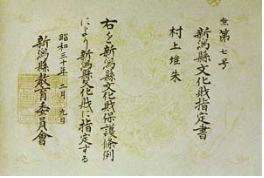 第七号
新潟縣文化財指定書
村上堆朱
右を新潟縣文化財保護條例
により新潟縣文化財に指定する
昭和三十年二月九日
新潟縣教育委員會